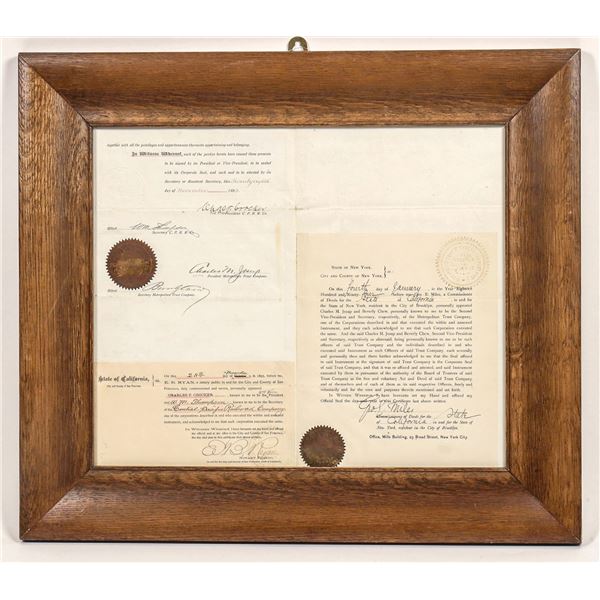 together with all the privileges and appurtenances thereunto appertaining and belonging.
In Witness Whereof, each of the parties hereto has caused these presents
to be signed by its President or Vice-President, to be sealed
with its Corporate Seal, and such seal to be attested by its
Secretary or Assistant Secretary, this
day of November 189
Chas F Crocker
Vice President C. P. R. R. Co.
Attest
Wm Thompson
Secretary C. P. R. R. Co.
Charles M. Jesup
President Metropolitan Trust Company.
Attest
Secretary Metropolitan Trust Company.
State of California,
City and County of San Francisco,
On this 28th day of November A. D. 189 , before me,
E. B. RYAN, a notary public in and for the City and County of San
Francisco, duly commissioned and sworn, personally appeared
CHARLES F. CROCKER, known to me to be the
W. M. Thompson, known to me to be the Secretary
of the Central Pacific Railroad Company,
one of the corporations described in and who executed the within and annexed
instrument, and acknowledged to me that such corporation executed the same.
In Witness Whereof, I have hereunto set my hand and affixed
my official seal at my office in the City and County of San Francisco,
the day and year in this certificate first above written.
E B Ryan
Notary Public,
STATE OF NEW YORK,
CITY AND COUNTY OF NEW YORK,
ss:
On this Fourth day of January in the Year Eighteen
Hundred and Ninety- before me E. Miles, a Commissioner
of Deeds for the State of California, in and for
the State of New York, resident in the City of Brooklyn, personally appeared
Charles M. Jesup and Beverly Chew, personally known to me to be the Second
Vice-President and Secretary, respectively, of the Metropolitan Trust Company,
one of the Corporations described in and that executed the within and annexed
Instrument, and they each acknowledged to me that such Corporation executed the
same. And the said Charles M. Jesup and Beverly Chew, being also personally
known to me to be the individuals described in and who executed said
Instrument as such Officers of said Trust Company, each severally and
personally then and there further acknowledged to me that the Seal affixed
to said Instrument as the signature of said Trust Company is the Corporate Seal
of said Trust Company; that it was affixed and said Instrument was
executed by them in pursuance of authority of the Board of Trustees of said
Trust Company and is the free and voluntary Act and Deed of said Trust Company
and of themselves and of each of them as its said Officers respectively, freely
and voluntarily by it and by them done and executed without fear or
compulsion, for the uses and purposes therein mentioned and set forth.
IN WITNESS WHEREOF I have hereunto set my Hand and affixed my
Official Seal the day and year of this Certificate last above written.
Geo E Miles
Commissioner of Deeds for the State
of California in and for the State of
New York, resident in the City of Brooklyn.
Office, Mills Building, 35 Broad Street, New York City